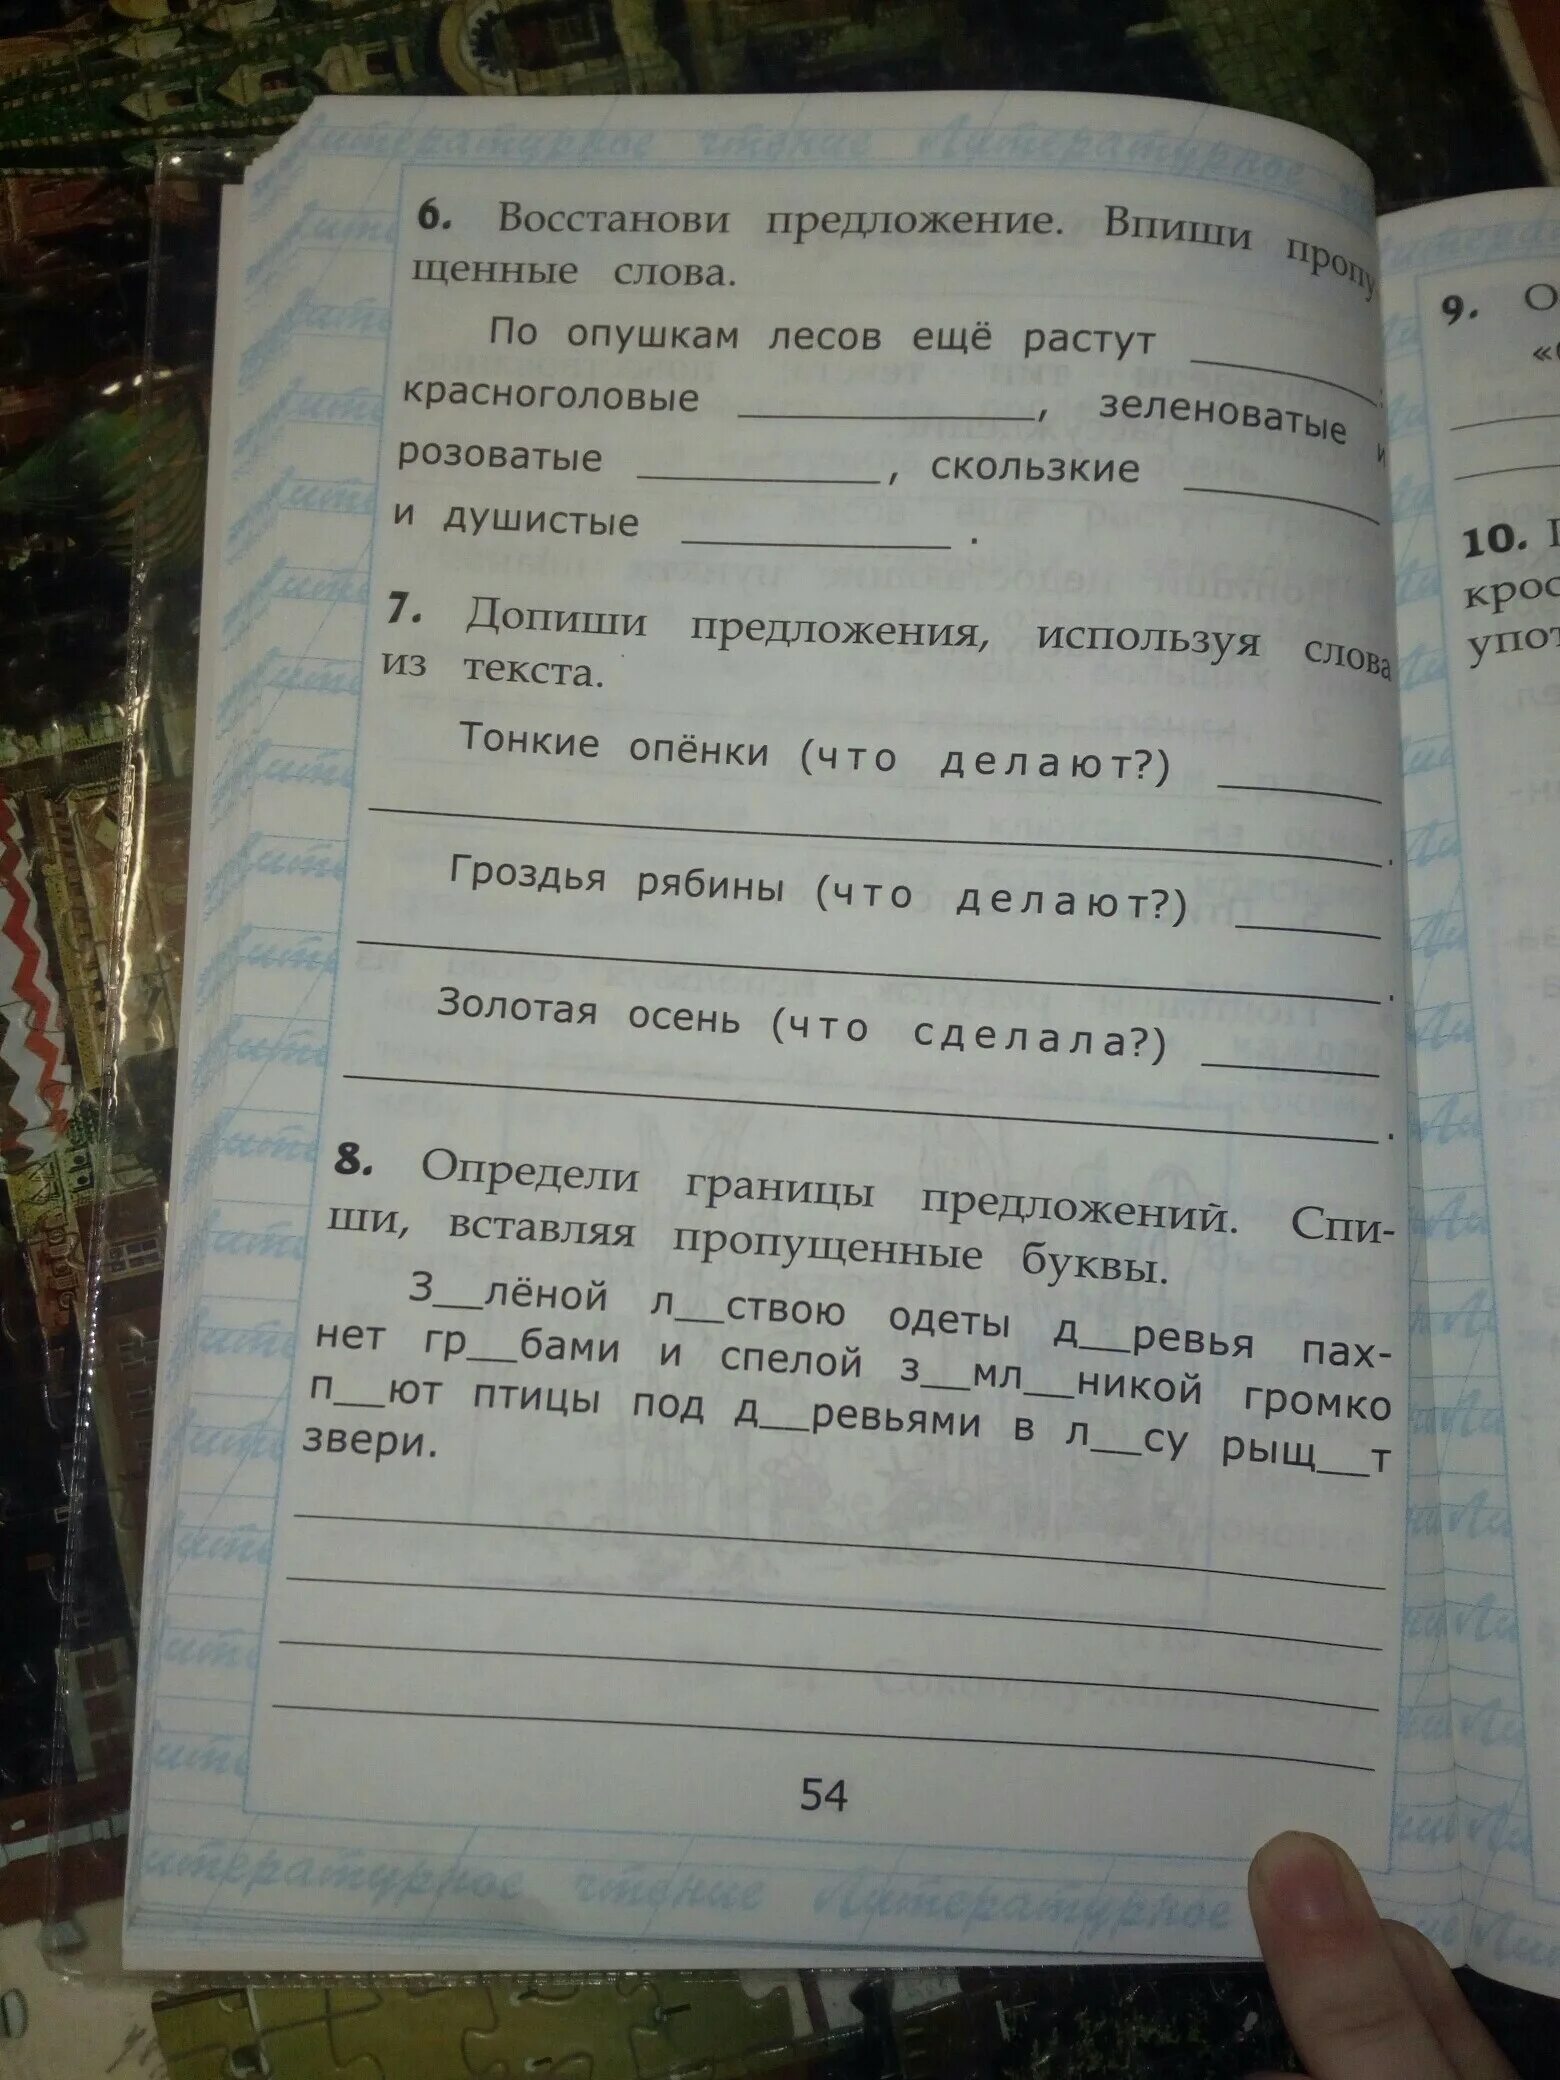 Литературное чтение Литературное
6. Восстанови предложение. Впиши пропу
щенные слова.
По опушкам лесов ещё растут ________:
красноголовые ________, зеленоватые и
розоватые ________, скользкие ________
и душистые ________.
7. Допиши предложения, используя слова
из текста.
Тонкие опёнки (что делают?) ________
________.
Гроздья рябины (что делают?) ________
________.
Золотая осень (что сделала?) ________
________.
8. Определи границы предложений. Спи-
ши, вставляя пропущенные буквы.
З__лёной л__ствою одеты д__ревья пах-
нет гр__бами и спелой з__мл__никой громко
п__ют птицы под д__ревьями в л__су рыщ__т
звери.
54
Литературное чтение Литературное
9. О
10.
крос
упот